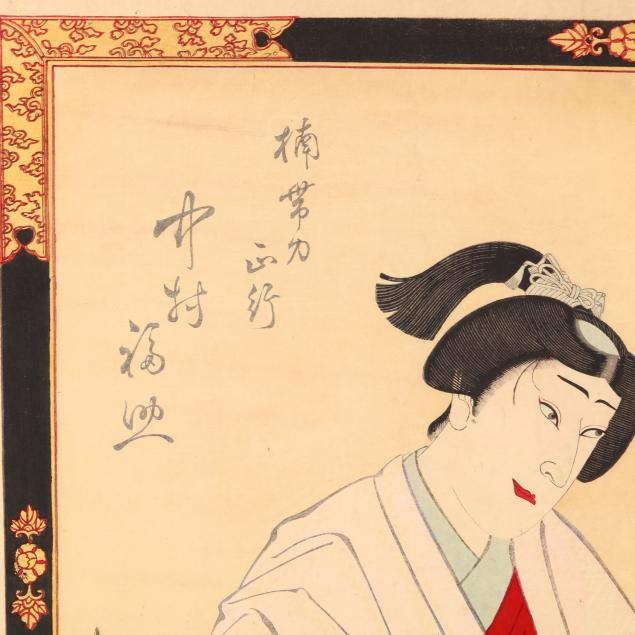 楠帯刀
正行
中村
福助